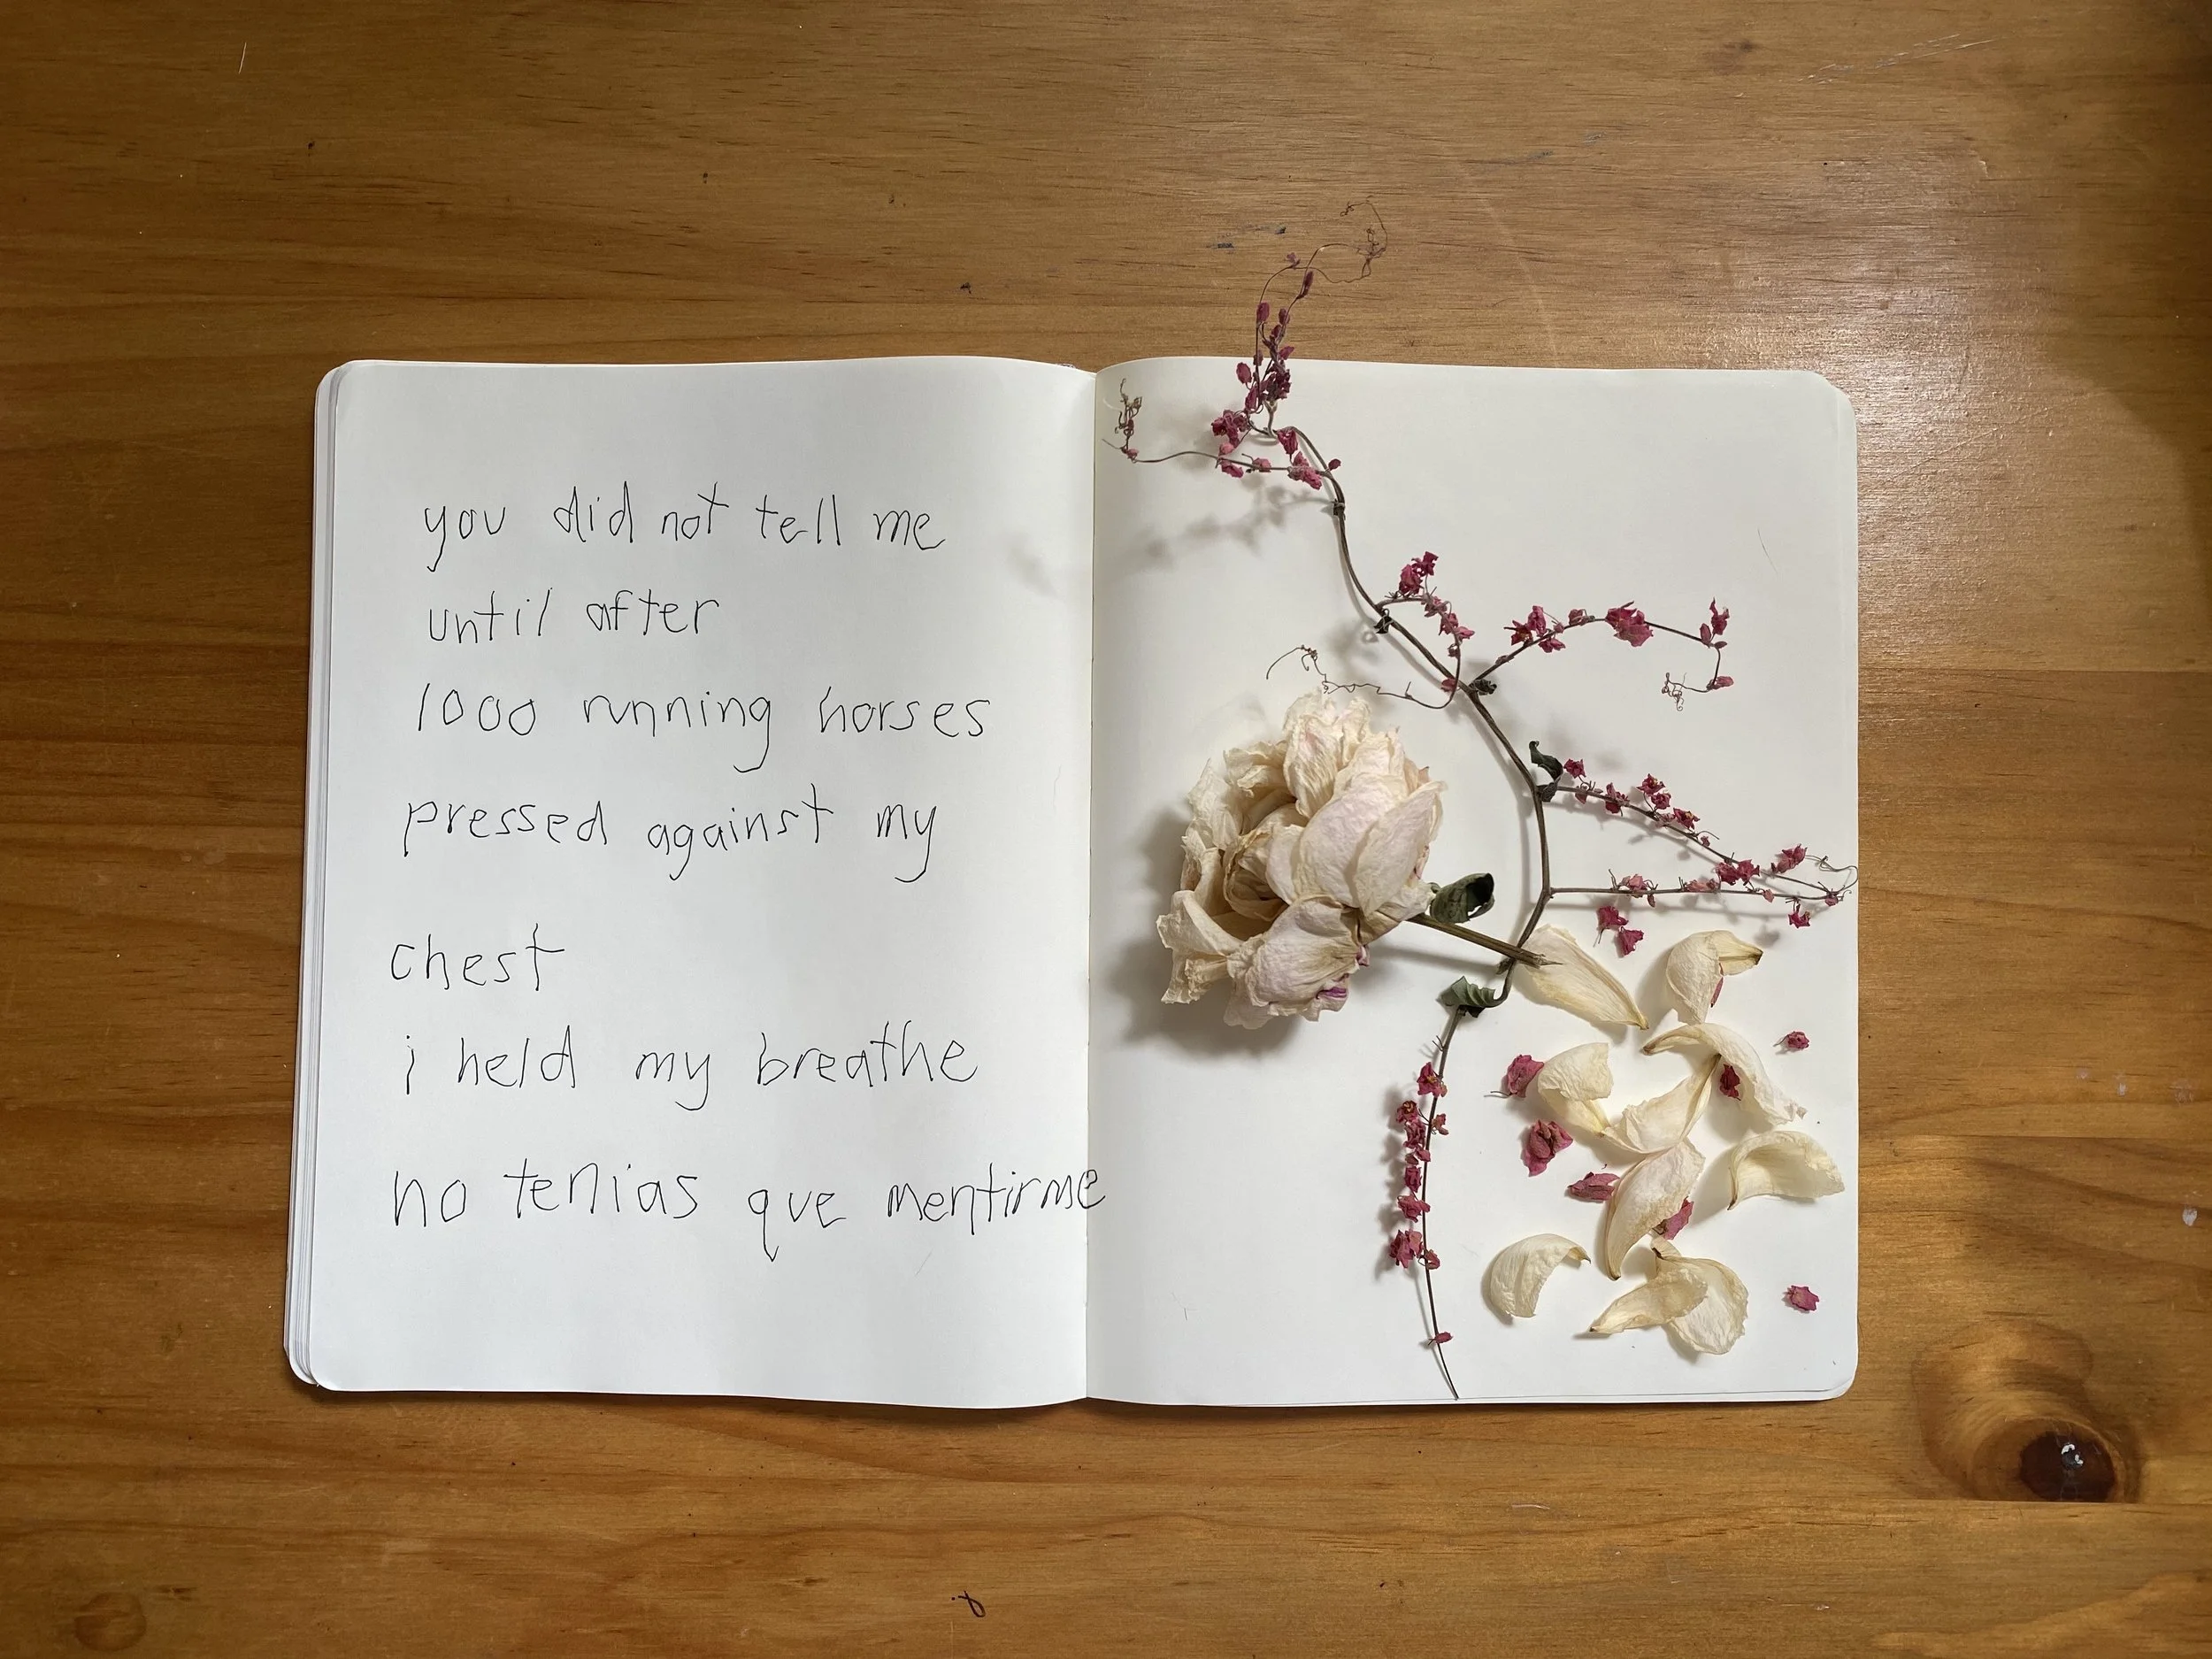 you did not tell me
until after
1000 running horses
pressed against my
chest
i held my breathe
no tenias que mentirme